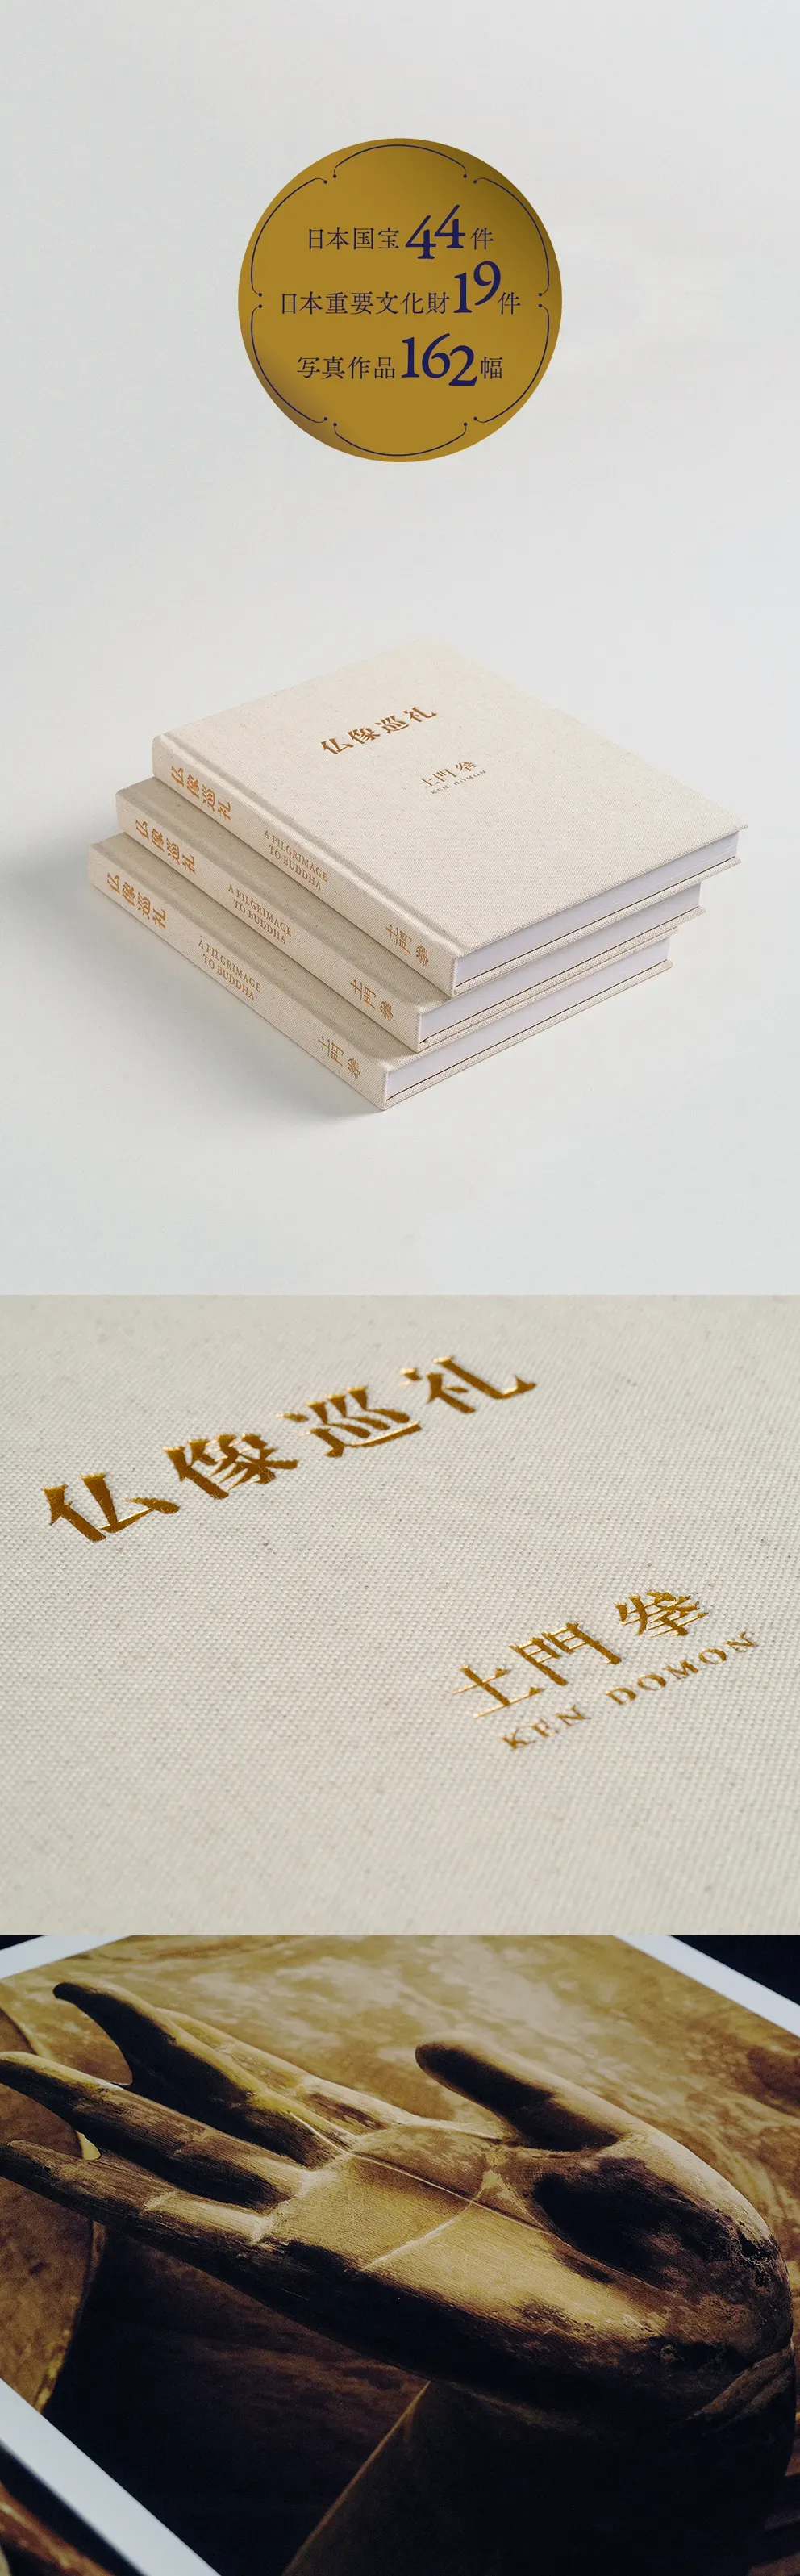 日本国宝44件
日本重要文化財19件
写真作品162幅
仏像巡礼
土門 拳
KEN DOMON
仏像巡礼
A PILGRIMAGE
TO BUDDHA
土門 拳
仏像巡礼
A PILGRIMAGE
TO BUDDHA
土門 拳
仏像巡礼
A PILGRIMAGE
TO BUDDHA
土門 拳
仏像巡礼
土門 拳
KEN DOMON